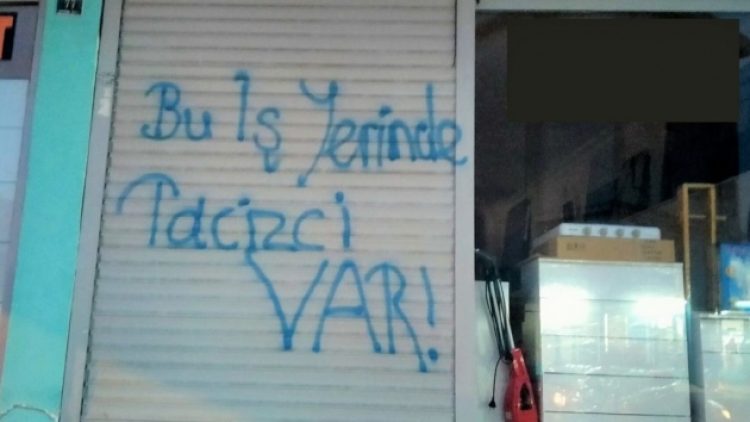 77
T
Bu İş Yerinde
Tacizci
VAR!